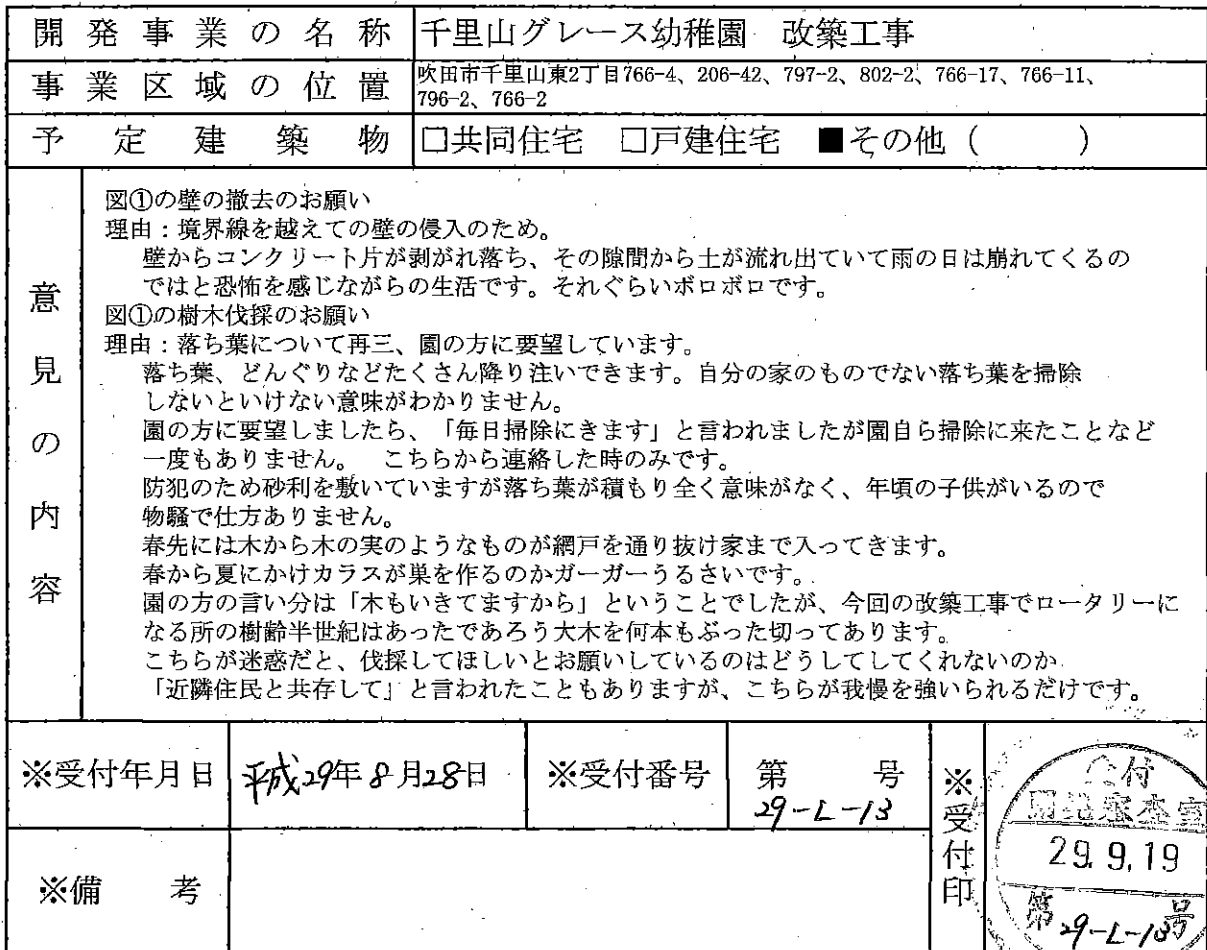 開発事業の名称 千里山グレース幼稚園　改築工事
事業区域の位置 吹田市千里山東2丁目766-4、206-42、797-2、802-2、766-17、766-11、
796-2、766-2
予定建築物 □共同住宅　□戸建住宅　■その他（　　　）
意見の内容
図①の壁の撤去のお願い
理由：境界線を越えての壁の侵入のため。
壁からコンクリート片が剥がれ落ち、その隙間から土が流れ出ていて雨の日は崩れてくるの
ではと恐怖を感じながらの生活です。それぐらいボロボロです。
図①の樹木伐採のお願い
理由：落ち葉について再三、園の方に要望しています。
落ち葉、どんぐりなどたくさん降り注いできます。自分の家のものでない落ち葉を掃除
しないといけない意味がわかりません。
園の方に要望しましたら、「毎日掃除にきます」と言われましたが園自ら掃除に来たことなど
一度もありません。　こちらから連絡した時のみです。
防犯のため砂利を敷いていますが落ち葉が積もり全く意味がなく、年頃の子供がいるので
物騒で仕方ありません。
春先には木から木の実のようなものが網戸を通り抜け家まで入ってきます。
春から夏にかけカラスが巣を作るのかガーガーうるさいです。
園の方の言い分は「木もいきてますから」ということでしたが、今回の改築工事でロータリーに
なる所の樹齢半世紀はあったであろう大木を何本もぶった切ってあります。
こちらが迷惑だと、伐採してほしいとお願いしているのはどうしてしてくれないのか
「近隣住民と共存して」と言われたこともありますが、こちらが我慢を強いられるだけです。
※受付年月日 平成29年8月28日 ※受付番号 第　　号
29-L-13
※受付印
付
29.9.19
第29-L-13号
※備　考